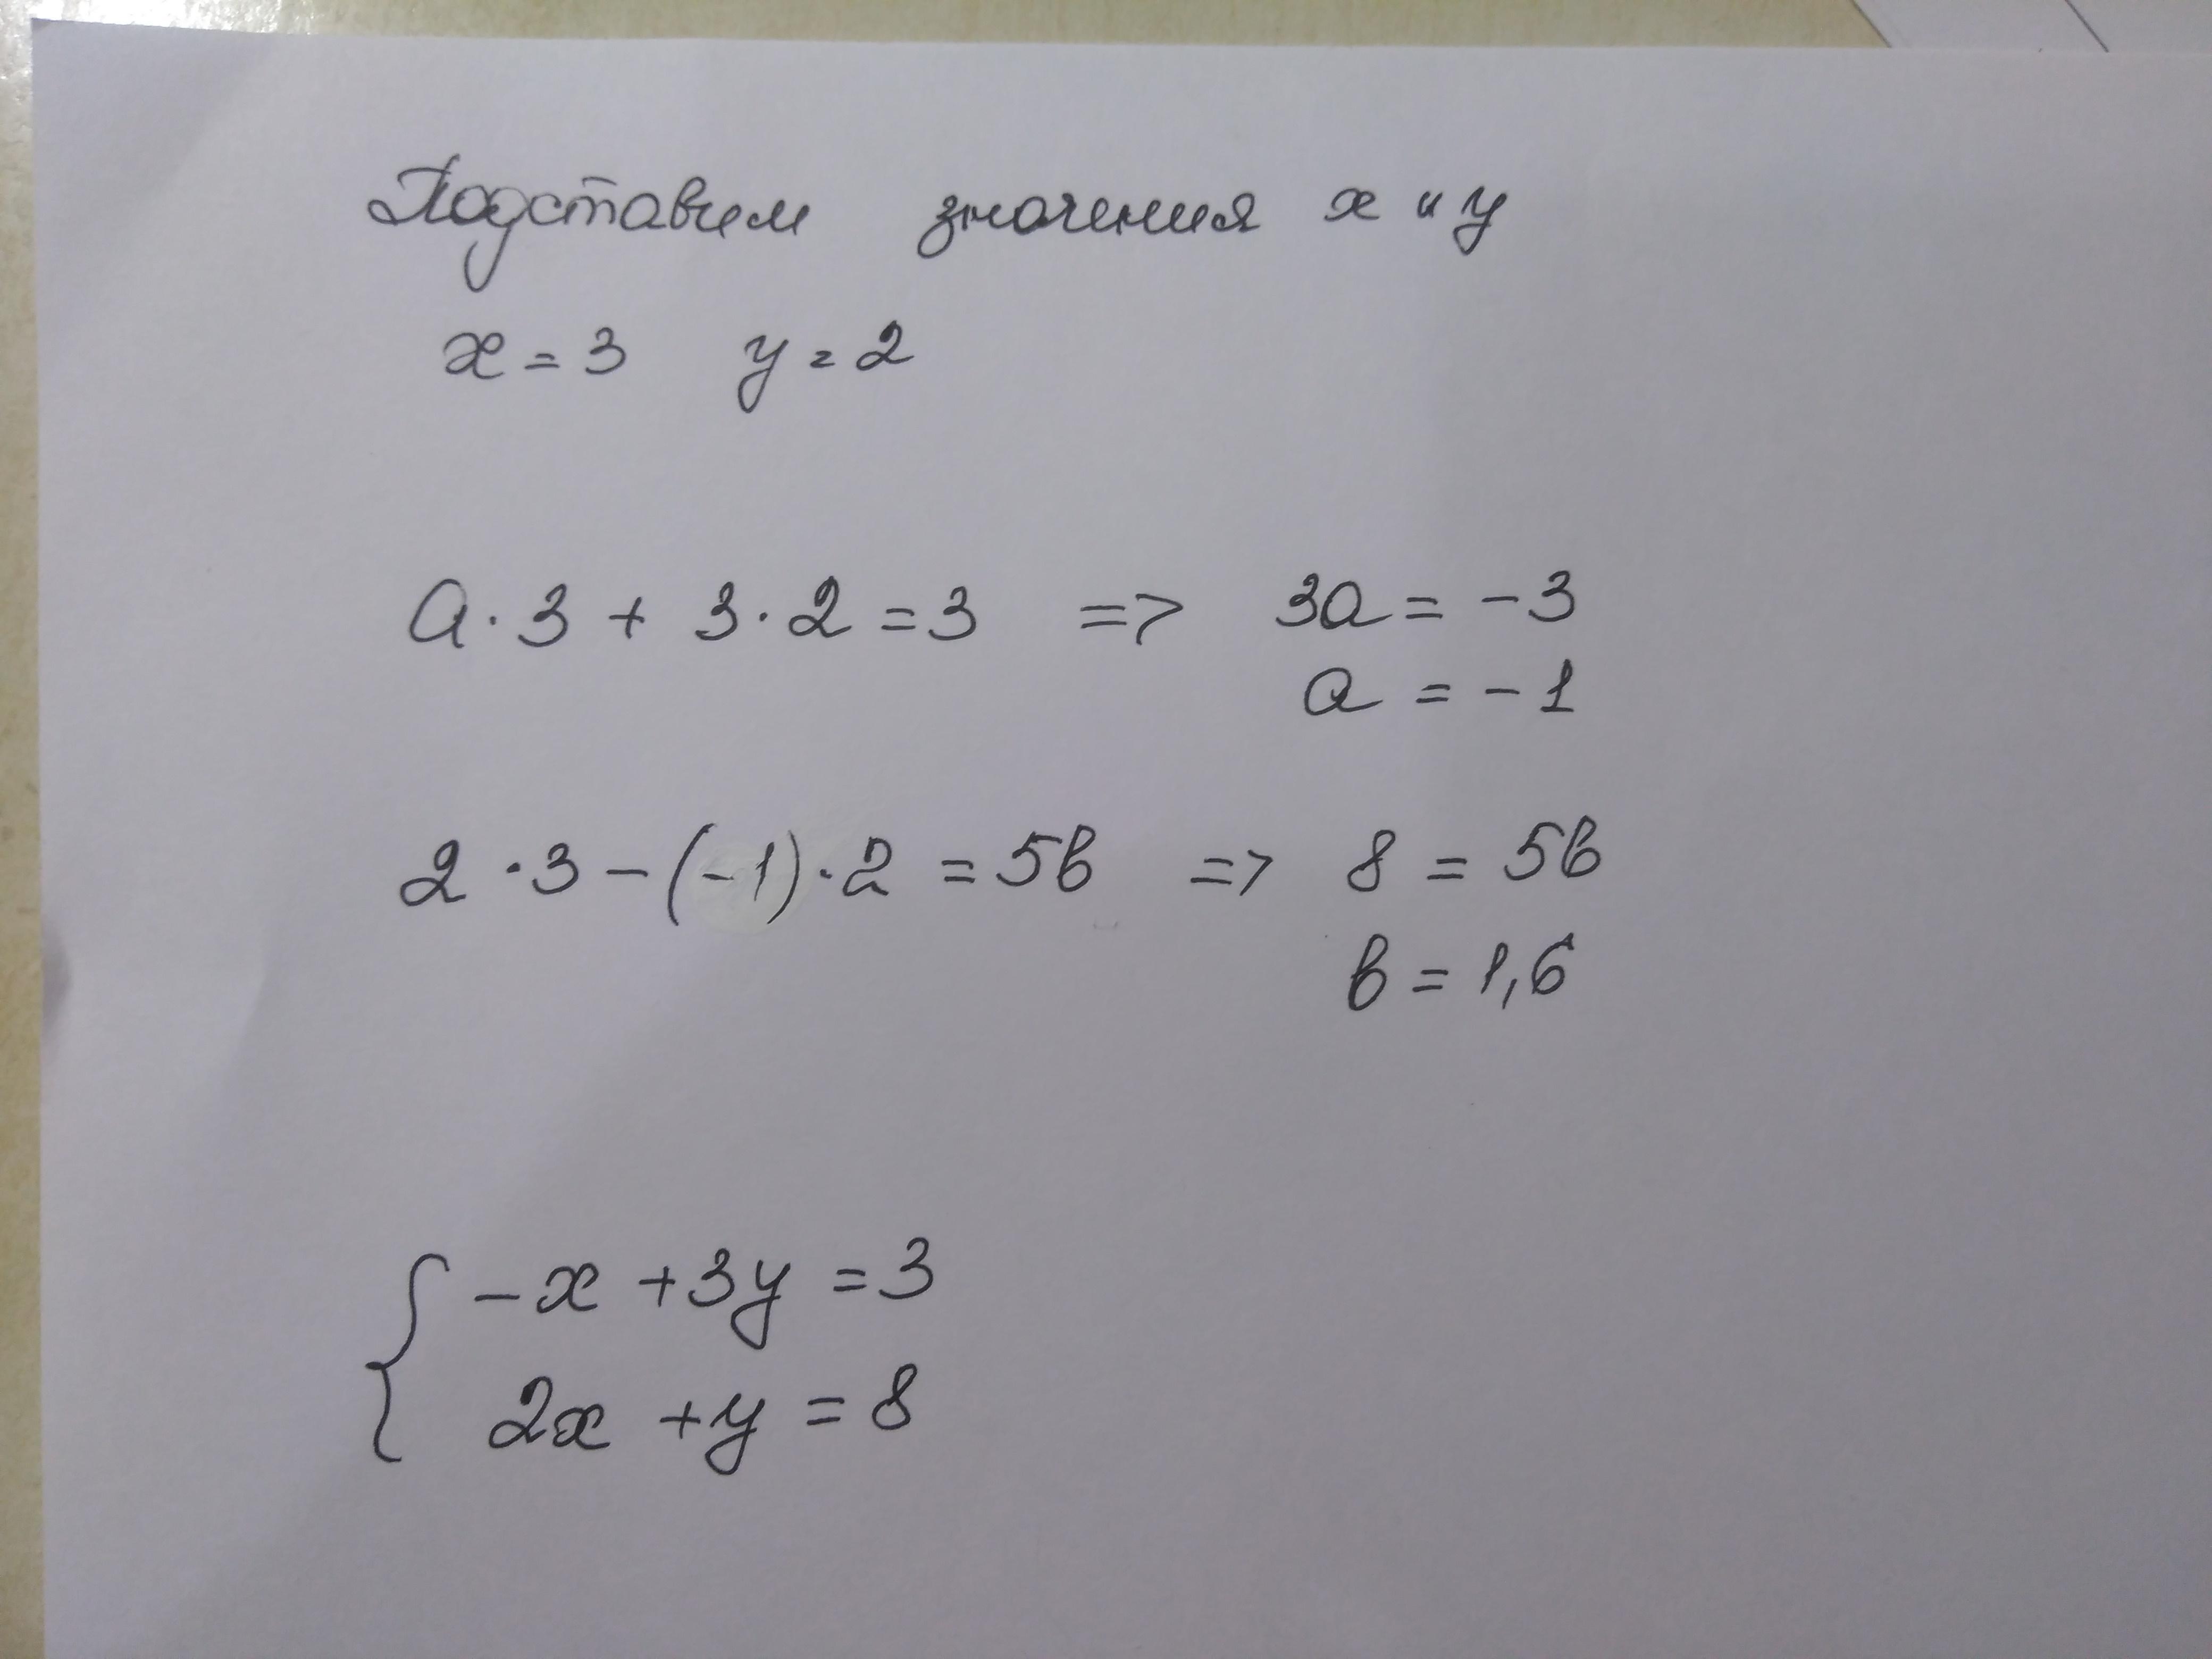 Подставим значения x и y
x = 3 y = 2
a · 3 + 3 · 2 = 3 => 3a = -3
a = -1
2 · 3 - (-1) · 2 = 5в => 8 = 5в
в = 1,6
{ -x + 3y = 3
2x + y = 8